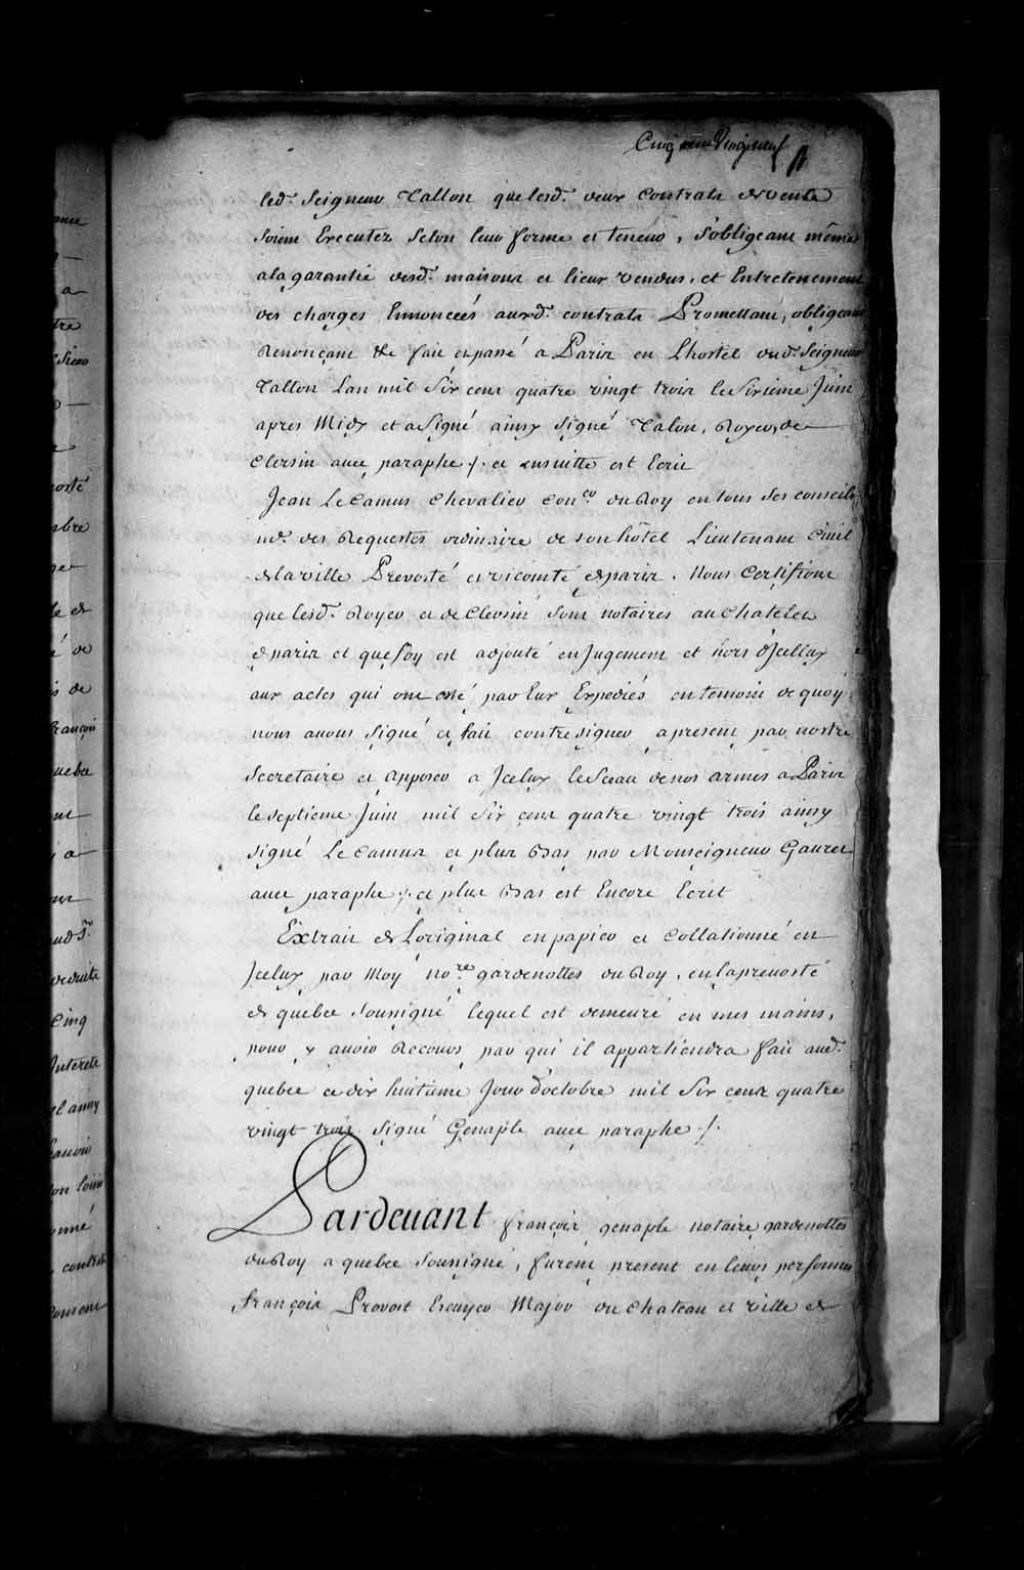 Cinq cent Vingt neuf
led. Seigneur Tallon que lesd. deux Contrats de vente
soient Executez Selon leur forme et teneur, s'obligeant même
a la garantie desd. maisons et lieux vendus, et Entretenement
des charges Ennoncées auxd. contrats Promettant, obligeant
Renonçant &c fait et passé a Paris en L'hostel dud. Seigneur
Tallon L'an mil Six cens quatre vingt trois le Sixieme Juin
apres Midy et a Signé ainsy Signé Talon, Royer, de
Clersin avec paraphe /. et ensuitte est Ecrit
Jean Le Camus Chevalier Con.er du Roy en tous Ses conseils
m.e des Requestes ordinaire de son hôtel Lieutenant Civil
de la ville Prevosté et vicomté de paris. Nous Certifions
que lesd. Royer et de Clersin Sont notaires au Chatelet
de paris et que foy est adjouté en Jugement et hors d'Jcelluy
aux actes qui ont esté par Eux Expediés en temoin de quoy
nous avons Signé et fait contresigner a present par nostre
Secretaire et apposer a Jceluy le Sceau de nos armes a Paris
le septieme Juin mil Six cens quatre vingt trois ainsy
Signé Le Camus et plus Bas par Monseigneur Gauret
avec paraphe /. et plus Bas est Encore Ecrit
Extrait de L'original en papier et Collationné en
Jceluy par Moy no.re gardenottes du Roy, en la prevosté
de quebec Soussigné lequel est demeuré en mes mains,
pour y avoir Recours par qui il appartiendra fait aud.
quebec ce dix huitieme Jour d'octobre mil Six cens quatre
vingt trois Signé Genaple avec paraphe /.
Pardevant françois genaple notaire gardenottes
du Roy a quebec Soussigné, furent present en leurs personnes
françois Provost Ecuyer Major du Chateau et ville de